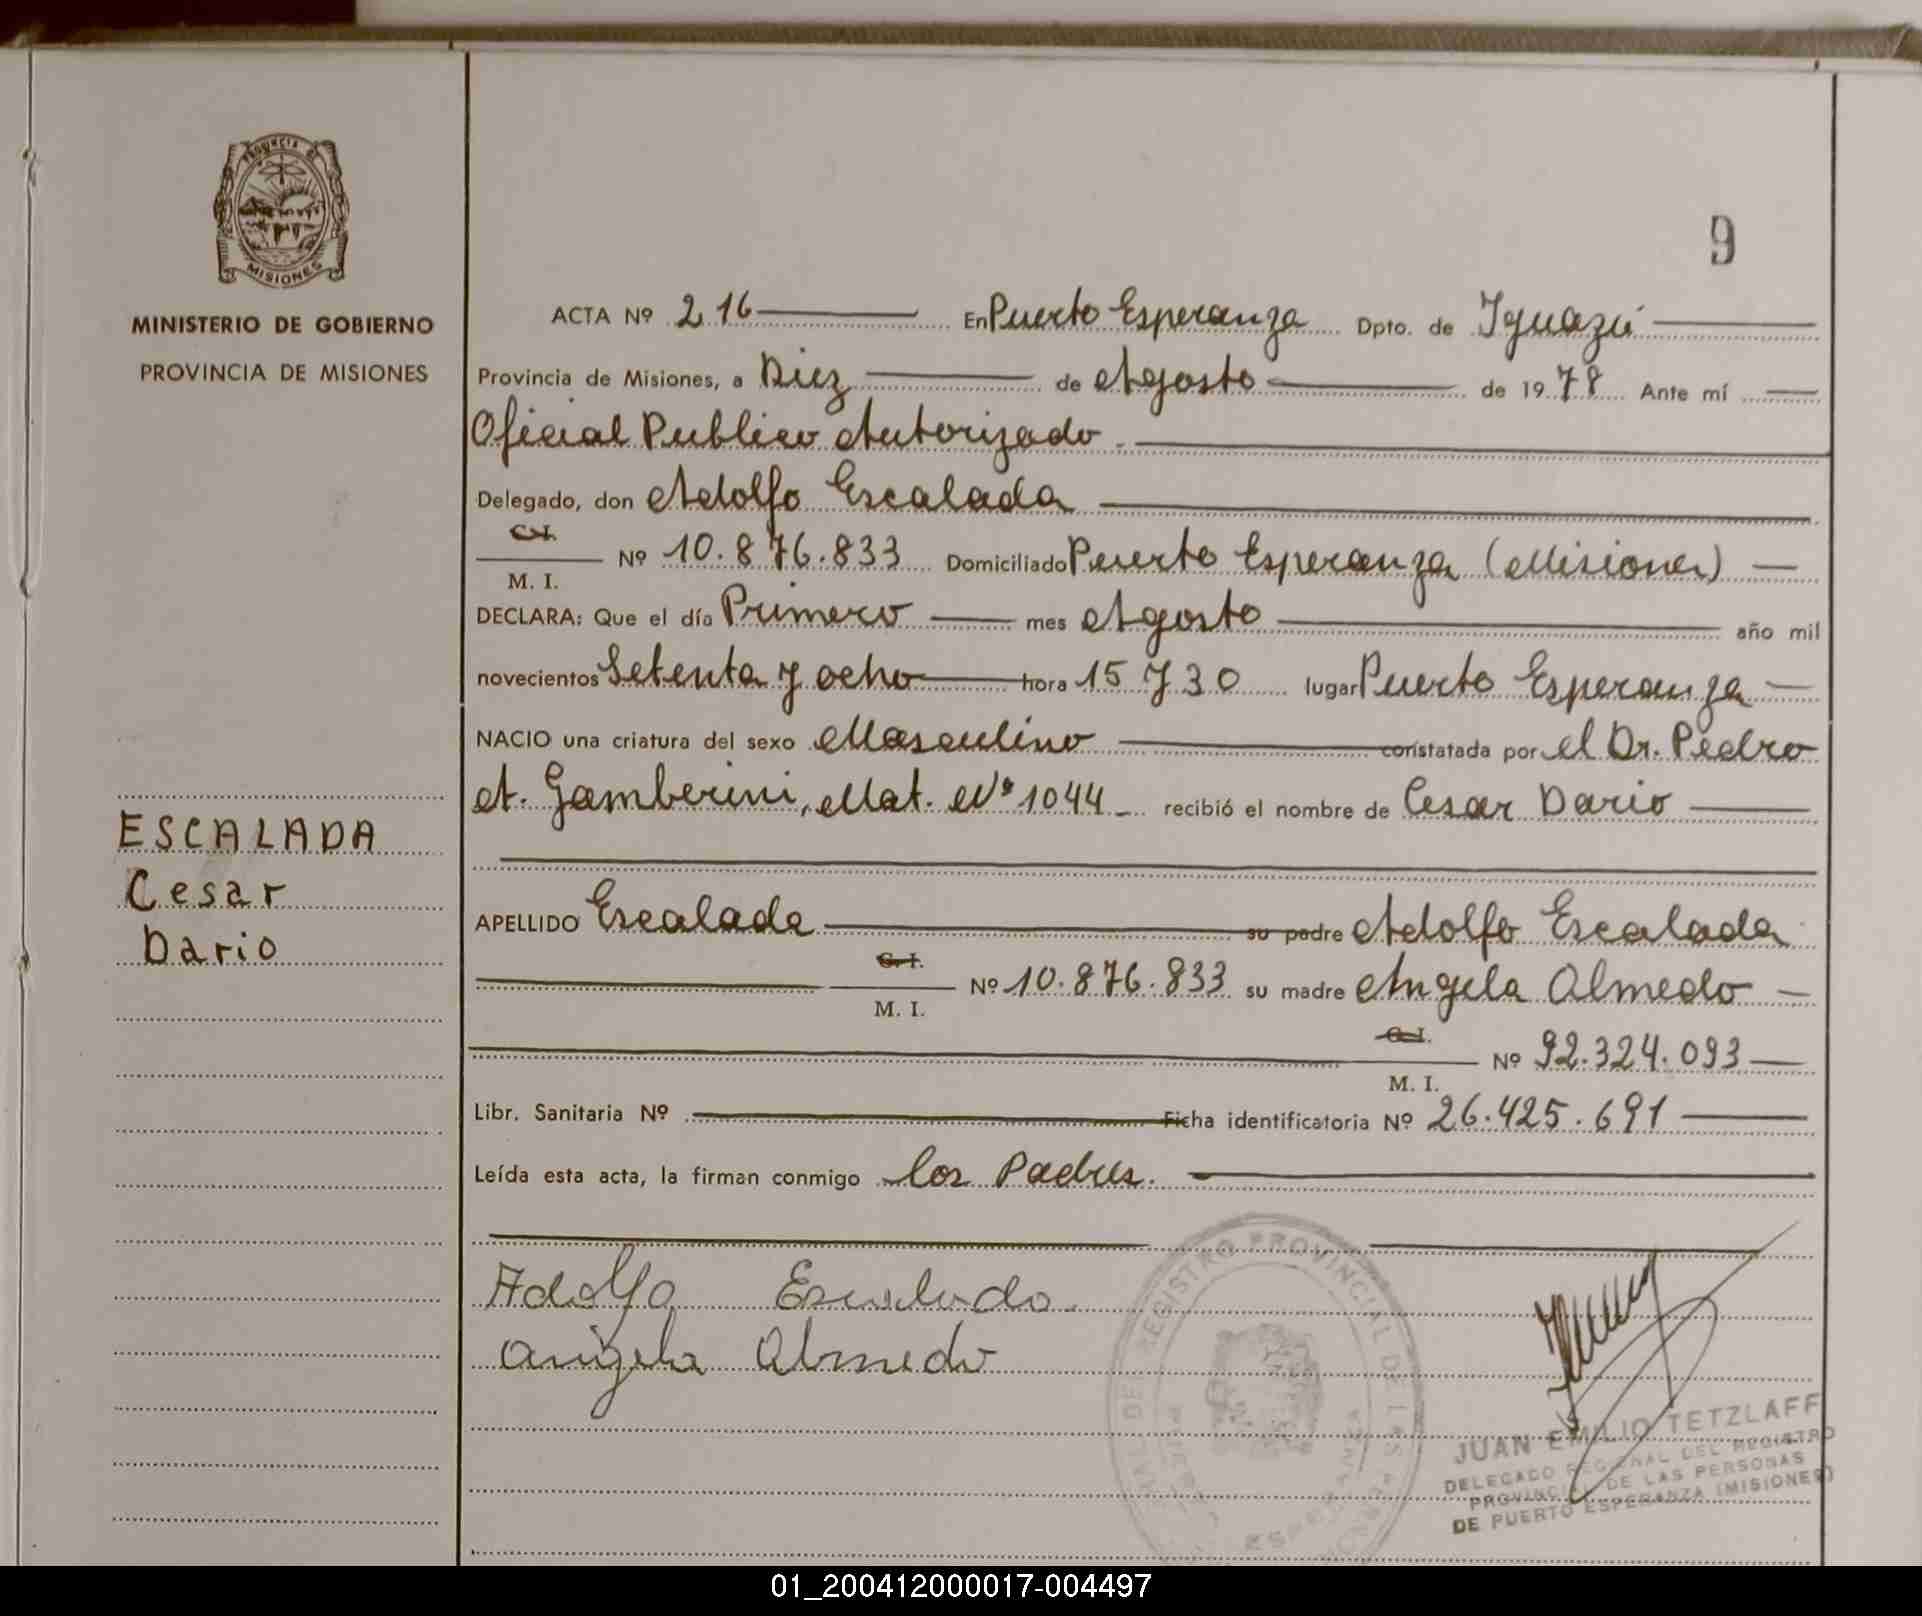 PROVINCIA DE
MISIONES
MINISTERIO DE GOBIERNO
PROVINCIA DE MISIONES
ESCALADA
Cesar
Dario
9
ACTA Nº 216 En Puerto Esperanza Dpto. de Iguazú
Provincia de Misiones, a Diez de Agosto de 1978 Ante mí
Oficial Publico Autorizado.
Delegado, don Adolfo Escalada
C.I.
M. I. Nº 10.876.833 Domiciliado Puerto Esperanza (Misiones)
DECLARA: Que el día Primero mes Agosto año mil
novecientos Setenta y ocho hora 15 y 30 lugar Puerto Esperanza
NACIO una criatura del sexo Masculino constatada por el Dr. Pedro
A. Gamberini, Mat. Nº 1044 recibió el nombre de Cesar Dario
APELLIDO Escalada su padre Adolfo Escalada
C. I.
M. I. Nº 10.876.833 su madre Angela Almedo
C. I.
M. I. Nº 92.324.093
Libr. Sanitaria Nº Ficha identificatoria Nº 26.425.691
Leída esta acta, la firman conmigo los Padres.
Adolfo Escalada
Angela Almedo
REGISTRO PROVINCIAL DE LAS
JUAN EMILIO TETZLAFF
DELEGADO REGIONAL DEL REGISTRO
PROVINCIAL DE LAS PERSONAS
DE PUERTO ESPERANZA (MISIONES)
01_200412000017-004497